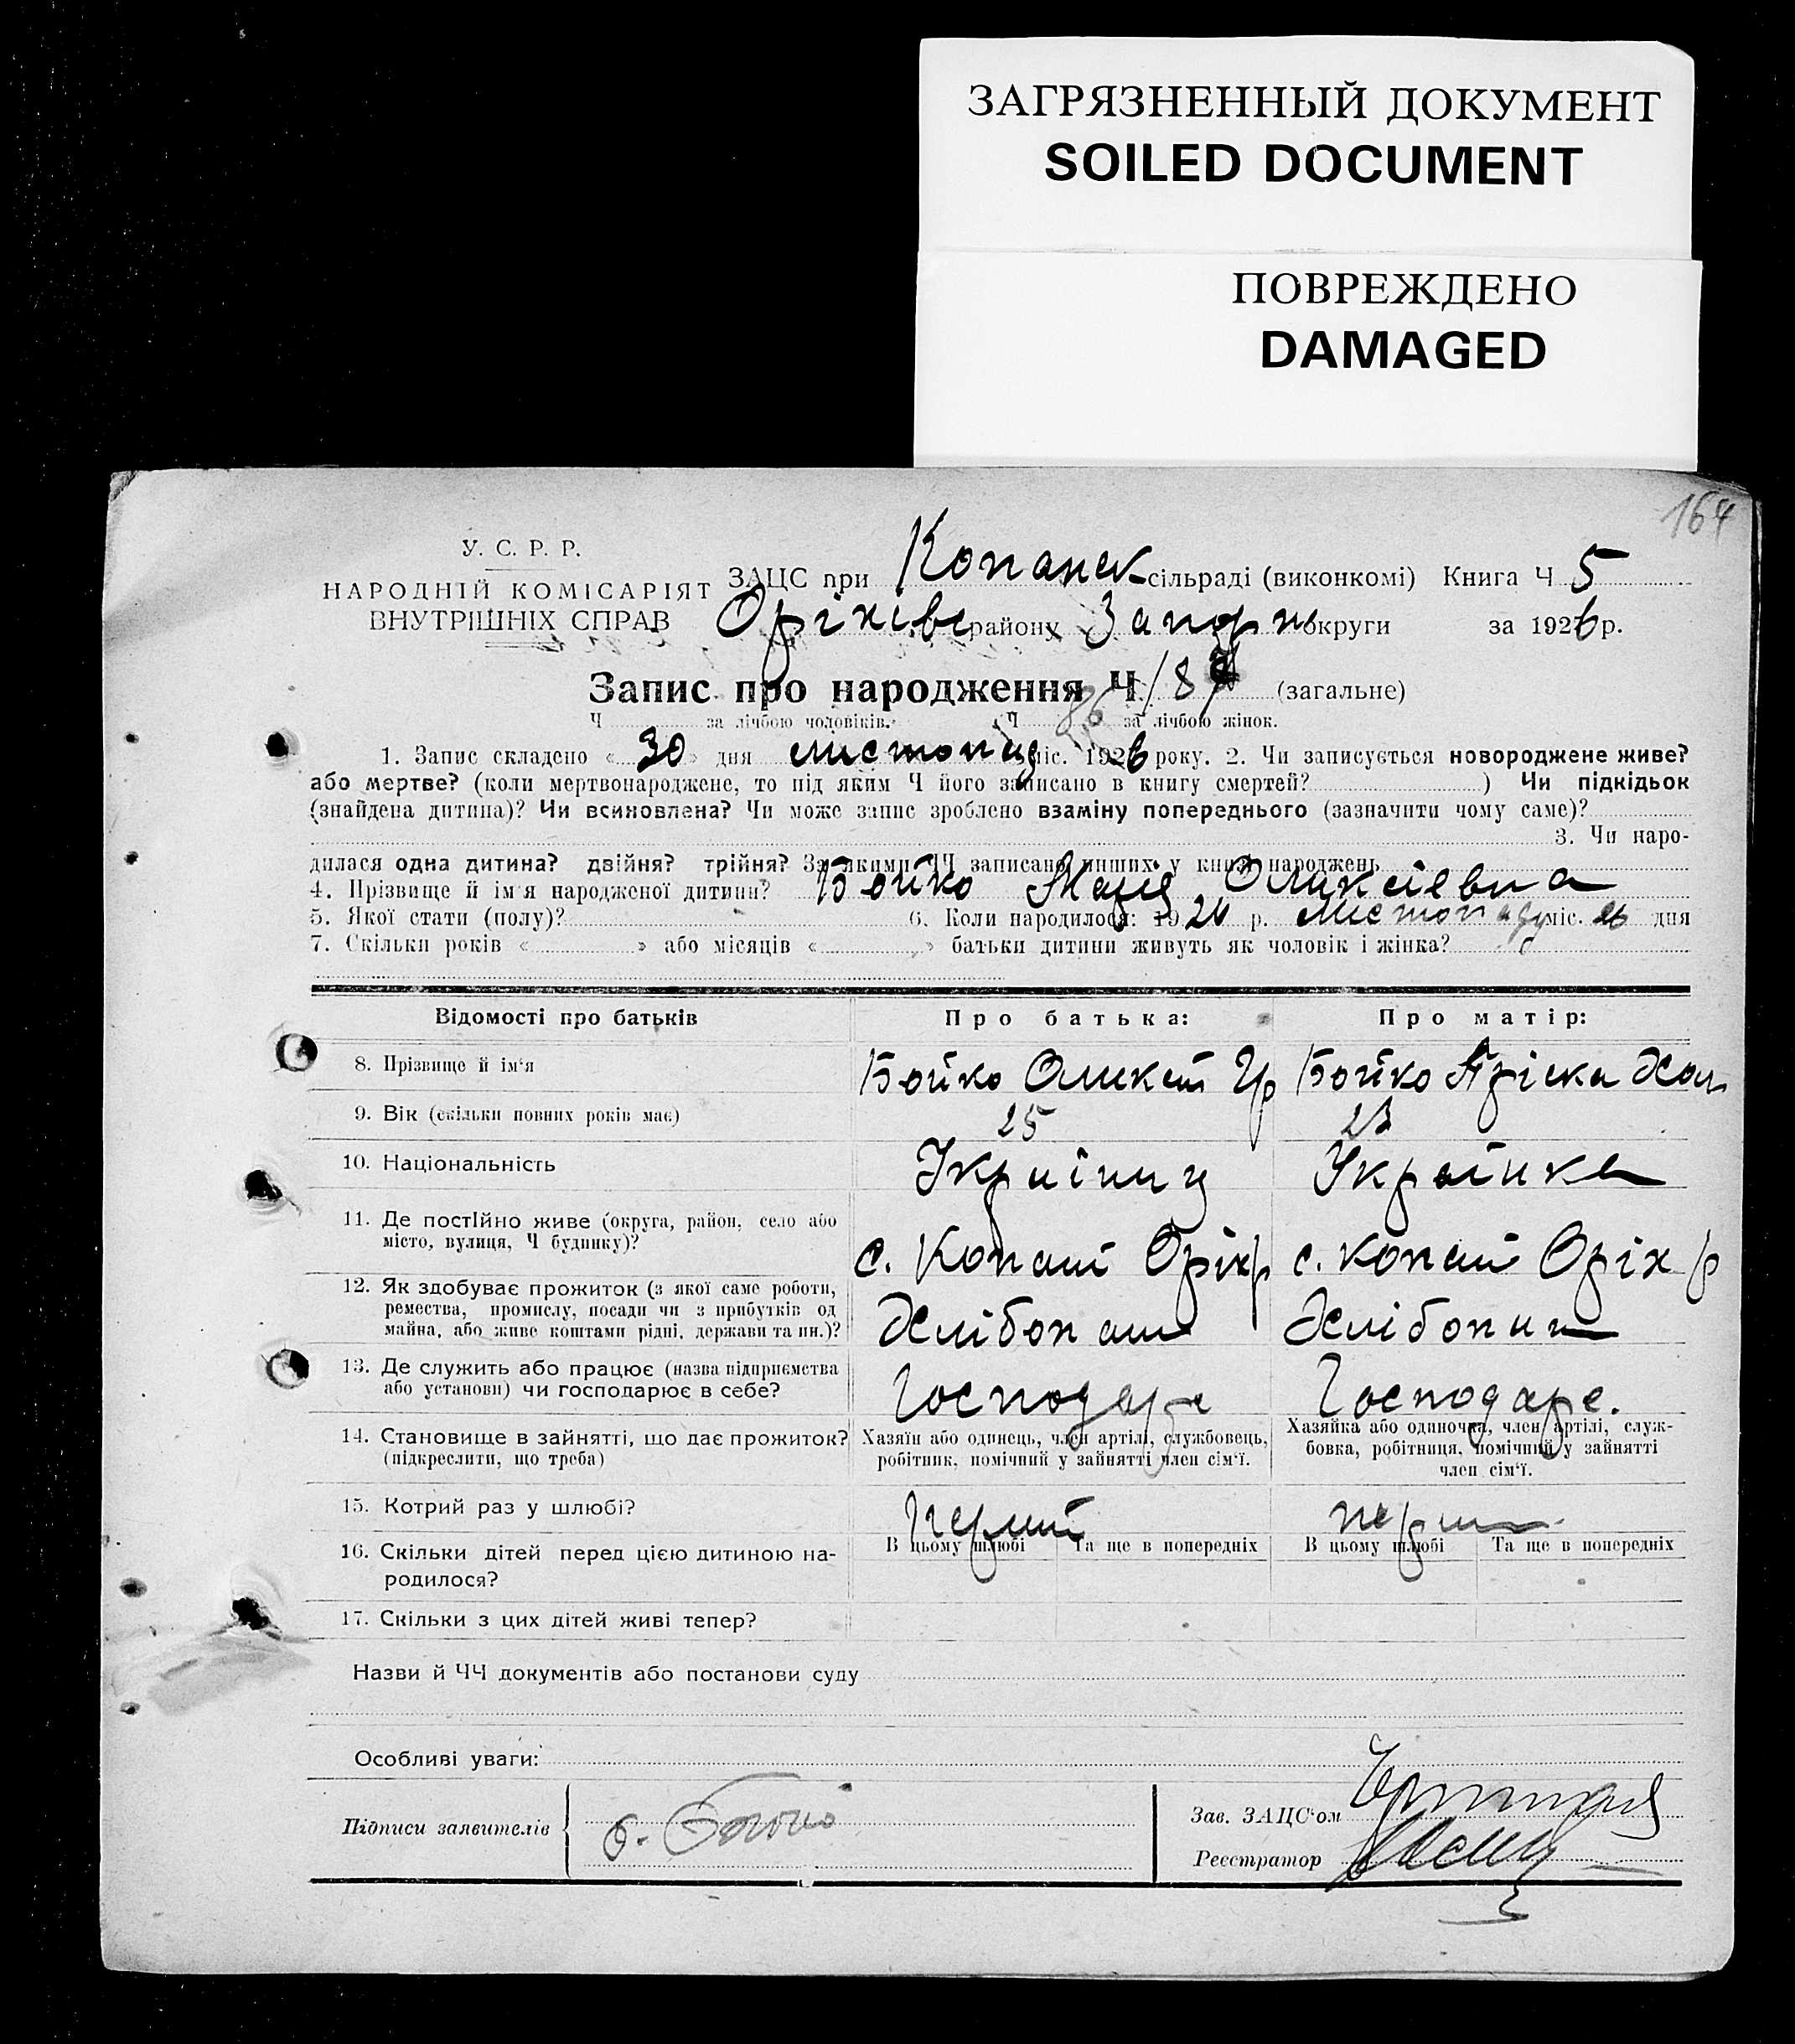 ЗАГРЯЗНЕННЫЙ ДОКУМЕНТ
SOILED DOCUMENT
ПОВРЕЖДЕНО
DAMAGED
164
У. С. Р. Р.
НАРОДНІЙ КОМІСАРІЯТ
ВНУТРІШНІХ СПРАВ
ЗАЦС при Копанск сільраді (виконкомі) Книга Ч 5
Оріхівс району Запоріж округи за 1926 р.
Запис про народження Ч 187 (загальне)
Ч за лічбою чоловіків. Ч 86 за лічбою жінок.
1. Запис складено « 30 » дня листопад міс. 1926 року. 2. Чи записується новороджене живе?
або мертве? (коли мертвонароджене, то під яким Ч його записано в книгу смертей? ) Чи підкідьок
(знайдена дитина)? Чи всиновлена? Чи може запис зроблено взаміну попереднього (зазначити чому саме)?
3. Чи наро-
дилася одна дитина? двійня? трійня? За якими ЧЧ записано инших у книзі народжень
4. Прізвище й ім'я народженої дитини? Бойко Марія Оликсіевна
5. Якої стати (полу)? 6. Коли народилося: 19 26 р. листопаду міс. 26 дня
7. Скільки років « » або місяців « » батьки дитини живуть як чоловік і жінка?
Відомості про батьків Про батька: Про матір:
8. Прізвище й ім'я Бойко Оликсій Гр Бойко
9. Вік (скільки повних років має) 25 23
10. Національність Україниц Українка
11. Де постІйно живе (округа, район, село або
місто, вулиця, Ч будинку)? с. Копані Оріх р с. Копані Оріх р
12. Як здобуває прожиток (з якої саме роботи,
ремества, промислу, посади чи з прибутків од
майна, або живе коштами рідні, держави та ин.)? Хлібопаш Хлібопаш
13. Де служить або працює (назва підприємства
або установи) чи господарює в себе? Господаре Господаре.
14. Становище в зайнятті, що дає прожиток?
(підкреслити, що треба)
Хазяїн або одинець, член артілі, службовець,
робітник, помічний у зайнятті член сім'ї.
Хазяйка або одиночка, член артілі, служ-
бовка, робітниця, помічний у зайнятті
член сім'ї.
15. Котрий раз у шлюбі? Перший перший
16. Скільки дітей перед цією дитиною на-
родилося?
В цьому шлюбі Та ще в попередніх В цьому шлюбі Та ще в попередніх
17. Скільки з цих дітей живі тепер?
Назви й ЧЧ документів або постанови суду
Особливі уваги:
Підписи заявителів
Зав. ЗАЦС'ом
Реєстратор